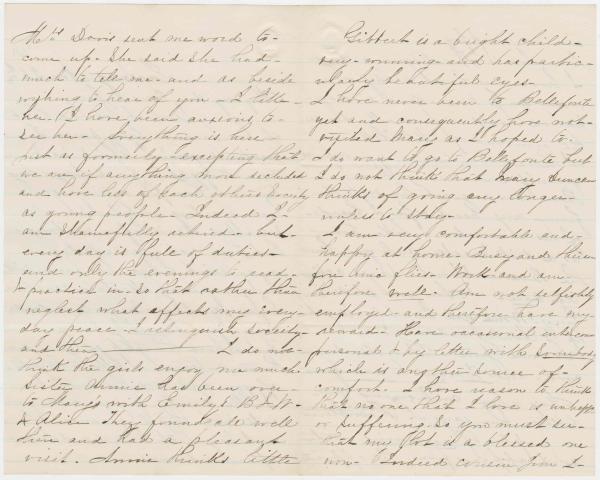 Mrs Davis sent me word to-
come up. She said she had-
much to tell me- and as beside
to hear of you- I
her. I have been anxious to-
see her- Everything is here
just as formerly- excepting that
we are if anything more secluded
and have less of each others Society
as young people- Indeed I-
am shamefully retired- but-
every day is full of duties-
and only the evenings to read-
& practice in. So that rather than
neglect what affects my every-
day peace- I relinquish society-
and then I do not-
think the girls enjoy me much
Sister Annie has been over
to Mary's with Emily's B & W-
& Alice They found all well
there and had a pleasant
visit. Annie thinks little
Gilbert is a bright child-
very- winning- and has partic-
ularly beautiful eyes-
I have never been to Bellefonte
yet and consequently have not-
visited Mary as I hoped to-
I do want to go to Bellefonte but
I do not think that Mary Duncan
thinks of going any longer-
unless to stay-
I am very comfortable and-
happy at home- Busy and there
fore time flies- Work and am
therefore well. Am not selfishly
employed- and therefore have my
reward- Have occasional intercourse
personal & by letter with Somebody
which is another source of-
comfort. I have reason to think
that no one that I love is unhappy
or suffering. So you must see-
that my lot is a blessed one
now- Indeed cousin I-